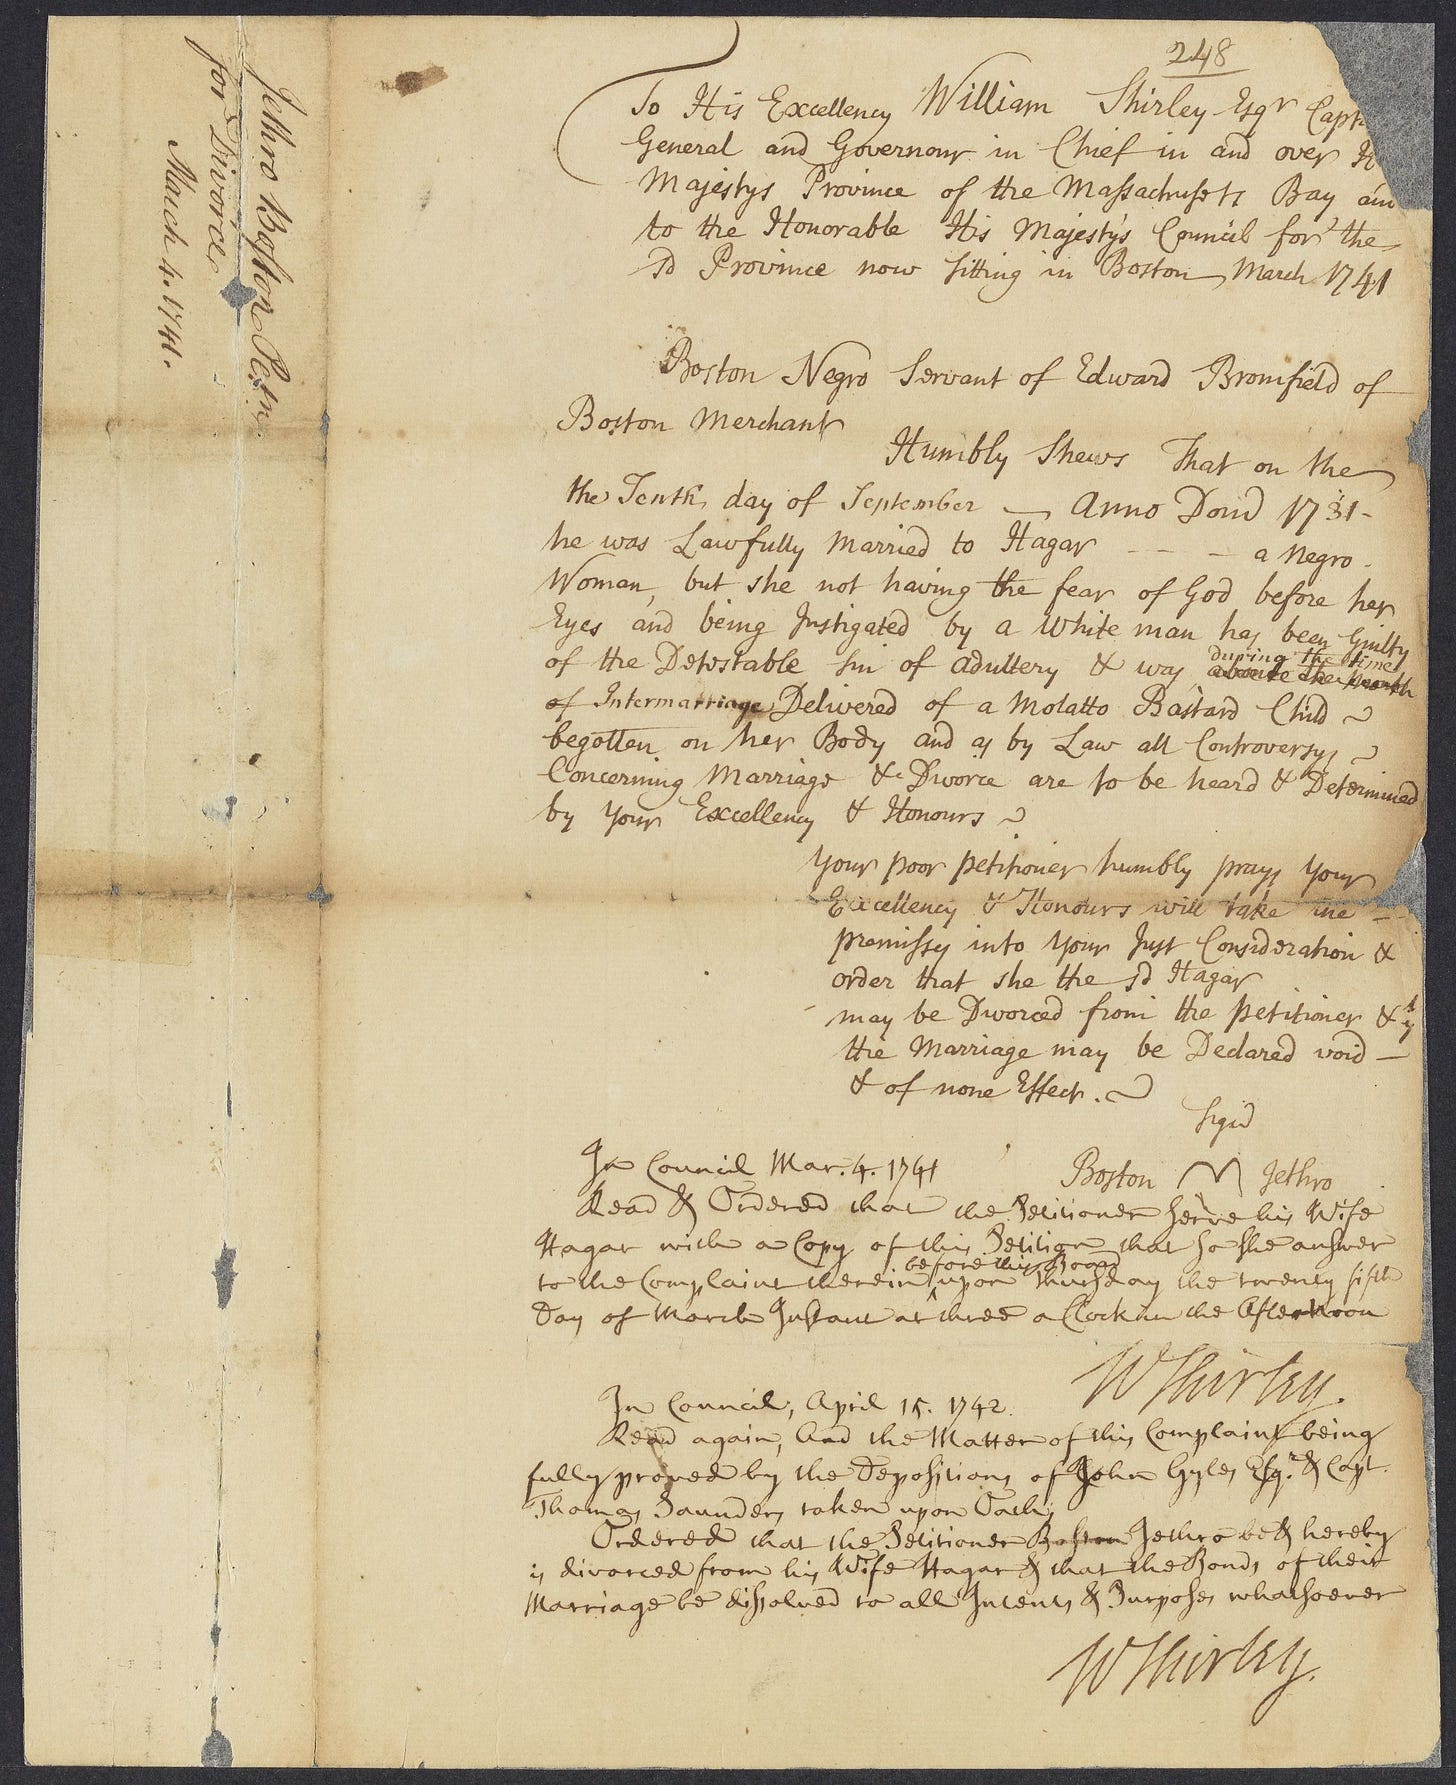 248
To His Excellency William Shirley Esqr Capt
General and Governour in Chief in and over
Majestys Province of the Massachusets Bay an
to the Honorable His Majesty's Council for the
sd Province now sitting in Boston March 1741
Boston Negro Servant of Edward Bromfield of
Boston Merchant
Humbly Shews That on the
the Tenth day of September — Anno Domi 1731 -
he was Lawfully Married to Hagar - - - a Negro -
Woman, but she not having the fear of God before her
Eyes and being Instigated by a White man has been Guilty
during the time
of the Detestable sin of adultery & was about the month
of Intermarriage Delivered of a Molatto Bastard Child ~
begotten on her Body and as by Law all Controversys ~
Concerning Marriage & Divorce are to be heard & Determined
by Your Excellency & Honours ~
Your poor petitioner humbly prays Your
Excellency & Honours will take the --
premisses into Your Just Consideration &
order that she the sd Hagar
may be Divorced from the petitioner & yt
the Marriage may be Declared void —
& of none Effect. ~
Sign'd
Boston Jethro
In Council Mar. 4. 1741
Read & Ordered that the Petitioner serve his Wife
Hagar with a Copy of this Petition that so she answer
before this Board
to the Complaint therein upon Thursday the twenty fifth
Day of March Instant at three a Clock in the Afternoon
WShirley.
In Council, April 15. 1742.
Read again, And the Matter of this Complaint being
fully proved by the Depositions of John Gyles Esqr. & Capt.
Thomas Saunders taken upon Oath;
Ordered that the Petitioner Boston Jethro be & hereby
is divorced from his Wife Hagar & that the Bonds of their
Marriage be dissolved to all Intents & Purposes whatsoever
WShirley.
Jethro Boston Petn.
for Divorce
March 4. 1741.